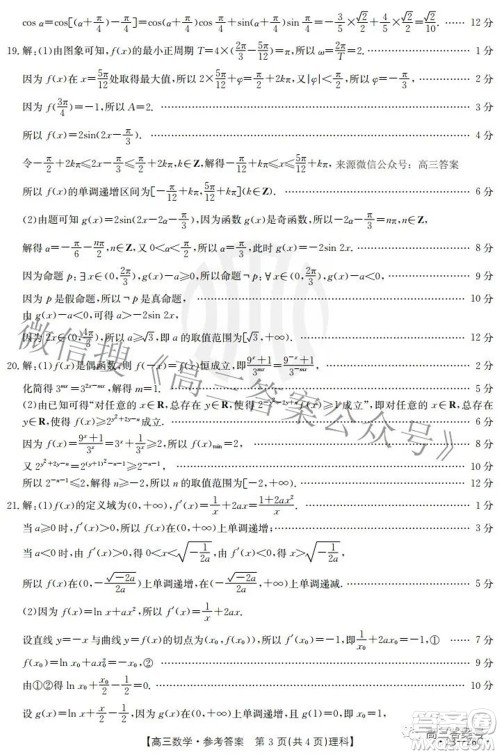 cos α=cos[(α+π/4)-π/4]=cos(α+π/4)cos π/4+sin(α+π/4)sin π/4=-3/5×√2/2+4/5×√2/2=√2/10. …… 12分
19.解:(1)由图象可知,f(x)的最小正周期T=4×(2π/3-5π/12)=π,所以ω=2π/T=2. …… 1分
因为f(x)在x=5π/12处取得最大值,所以2×5π/12+φ=π/2+2kπ,又|φ|<π/2,所以φ=-π/3, …… 2分
因为f(3π/4)=-1,所以A=2. …… 3分
所以f(x)=2sin(2x-π/3). …… 4分
令-π/2+2kπ≤2x-π/3≤π/2+2kπ,k∈Z,解得-π/12+kπ≤x≤5π/12+kπ, 来源微信公众号:高三答案
所以f(x)的单调递增区间为[-π/12+kπ,5π/12+kπ](k∈Z). …… 6分
(2)由题可知g(x)=2sin(2x-2α-π/3),因为函数g(x)是奇函数,所以-2α-π/3=nπ,n∈Z,
解得α=-π/6-nπ/2,n∈Z,又0<α<π/2,所以α=π/3,此时g(x)=-2sin 2x. …… 8分
因为命题p:∃x∈(0,2π/3),g(x)-a≥0,所以¬p:∀x∈(0,2π/3),g(x)-a<0, …… 9分
因为p是假命题,所以¬p为真命题, …… 10分
由g(x)-a<0,可得a>-2sin 2x.
因为2x∈(0,4π/3),所以a≥√3,即a的取值范围为[√3,+∞). …… 12分
20.解:(1)f(x)是偶函数,则f(-x)=f(x)恒成立,即(9^x+1)/3^{mx}=(9^{-x}+1)/3^{-mx}, …… 2分
化简得3^{mx}=3^{2x-mx},解得m=1. …… 4分
(2)由已知可得“对任意的x∈R,总存在
y∈R,使f(x)≥2
成立. …… 6分
因为f(x)=(9^x+1)/3^x=3^x+1/3^x≥2,所以f(x)min=2, …… 8分
又2^{y²+2y-a}=2^{(y+1)²-a-1}≥2^{-a-1}, …… 10分
所以2^{-a-1}≤2,解得a≥-2,所以a的取值范围为[-2,+∞). …… 12分
21.解:(1)f(x)的定义域为(0,+∞),f′(x)=1/x+2ax=(1+2ax²)/x. …… 1分
当a≥0时,f′(x)>0,所以f(x)在(0,+∞)上单调递增; …… 3分
当a<0时,由f′(x)>0,得0<x<√(-1/2a),由f′(x)<0,得x>√(-1/2a),
所以f(x)在(0,-√(-2a)/2a)上单调递增,在(-√(-2a)/2a,+∞)上单调递减. …… 5分
(2)因为f(x)=ln x+ax²,所以f′(x)=1/x+2ax.
设直线y=-x与曲线y=f(x)的切点为(x₀,f(x₀)),所以f′(x₀)=-1,即1/x₀+2ax₀=-1,① …… 7分
f(x₀)=ln x₀+ax₀²=-x₀,② …… 9分
由①②得ln x₀+x₀/2-1/2=0. …… 10分
【高三数学·参考答案 第3页(共4页)理科】
微信搜《高三答案公众号》